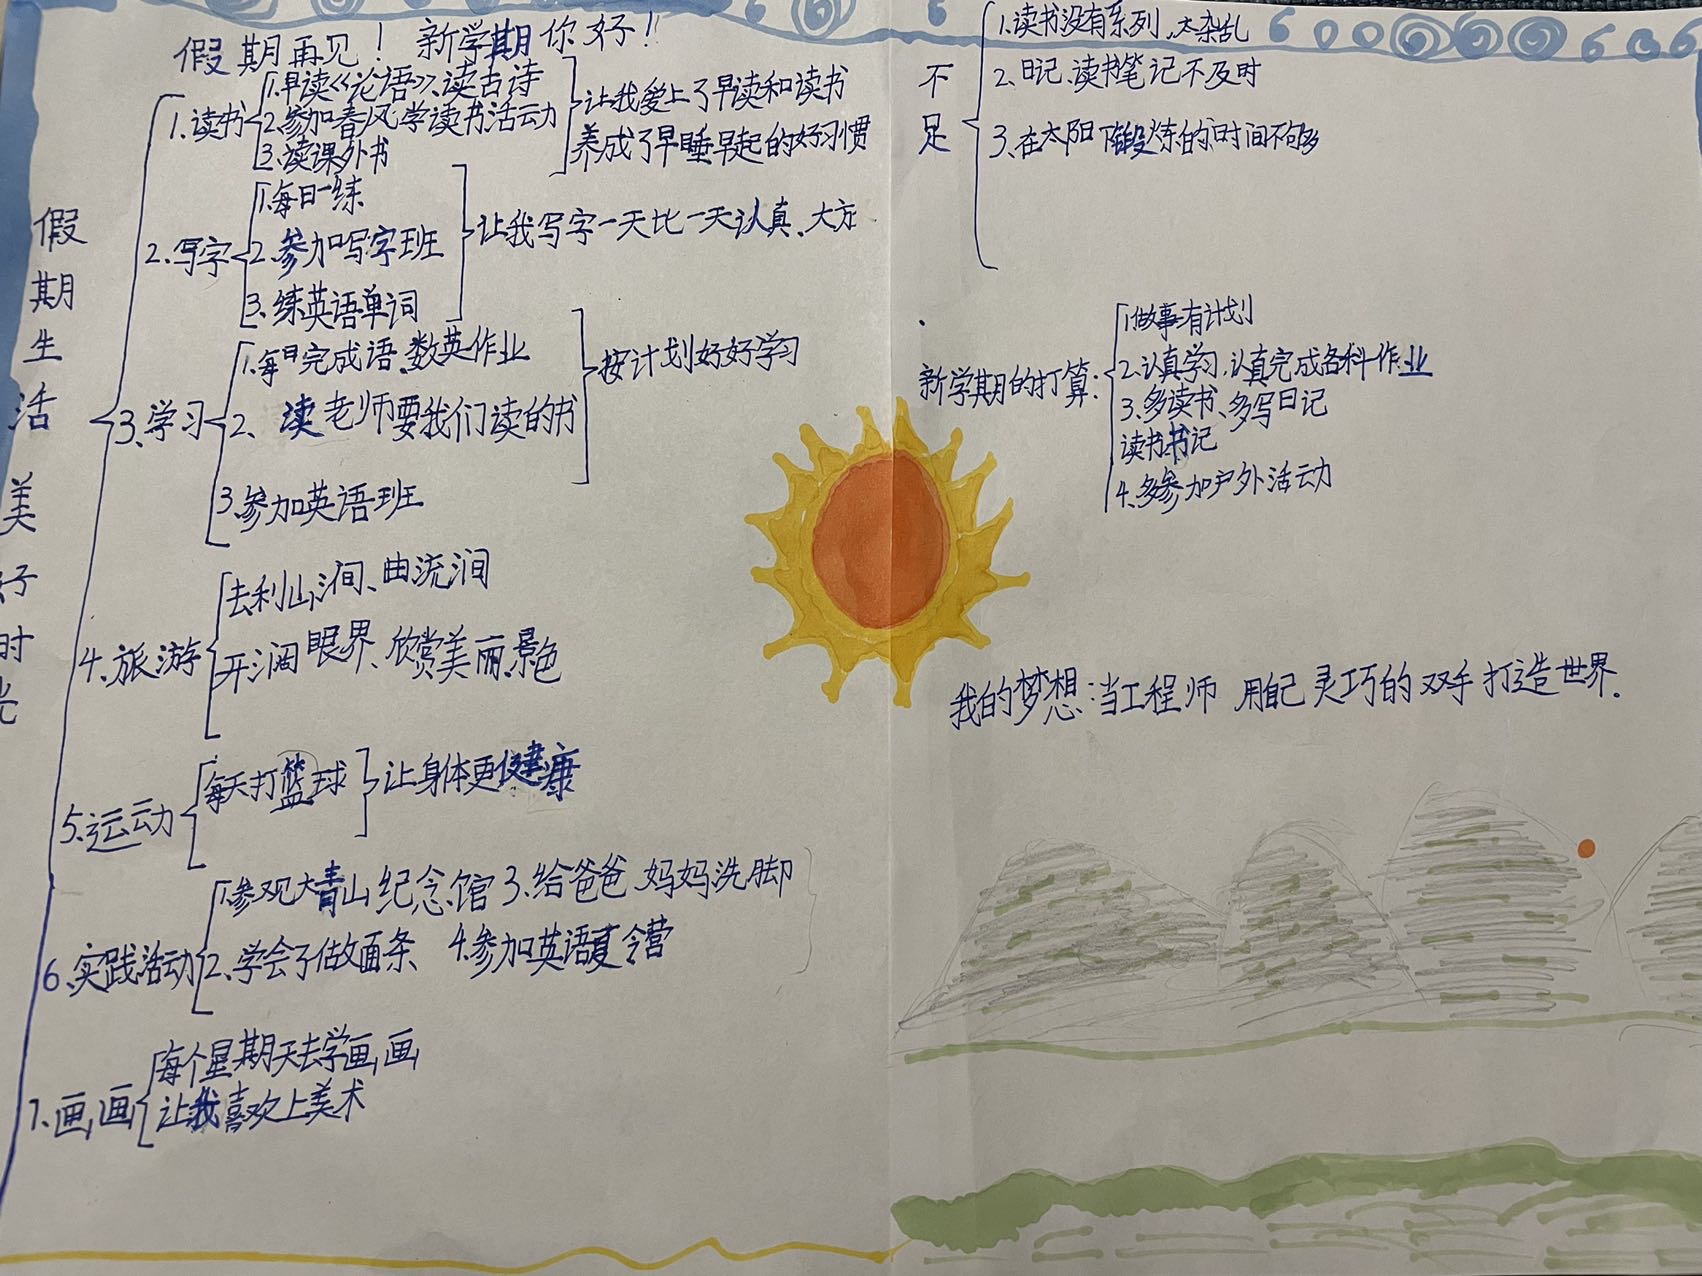 假期再见！新学期你好！！
假期生活 美好时光
1.读书
1.早读《论语》、读古诗
2.参加春风学读书活动
3.读课外书
让我爱上了早读和读书
养成了早睡早起的好习惯
2.写字
1.每日一练
2.参加写字班
3.练英语单词
让我写字一天比一天认真、大方
3.学习
1.每日完成语、数英作业
2、读老师要我们读的书
3.参加英语班
按计划好好学习
4.旅游
去利山涧、曲流涧
开阔眼界、欣赏美丽景色
5.运动
每天打篮球
让身体更健康
6.实践活动
1.参观大青山纪念馆 3.给爸爸、妈妈洗脚
2.学会了做面条 4.参加英语夏令营
7.画画
每个星期天去学画画
让我喜欢上美术
不足
1.读书没有系列,太杂乱
2.日记、读书笔记不及时
3.在太阳下锻炼的时间不够多
新学期的打算:
1.做事有计划
2.认真学习,认真完成各科作业
3.多读书、多写日记
读书书记
4.多参加户外活动
我的梦想:当工程师 用自己灵巧的双手打造世界.